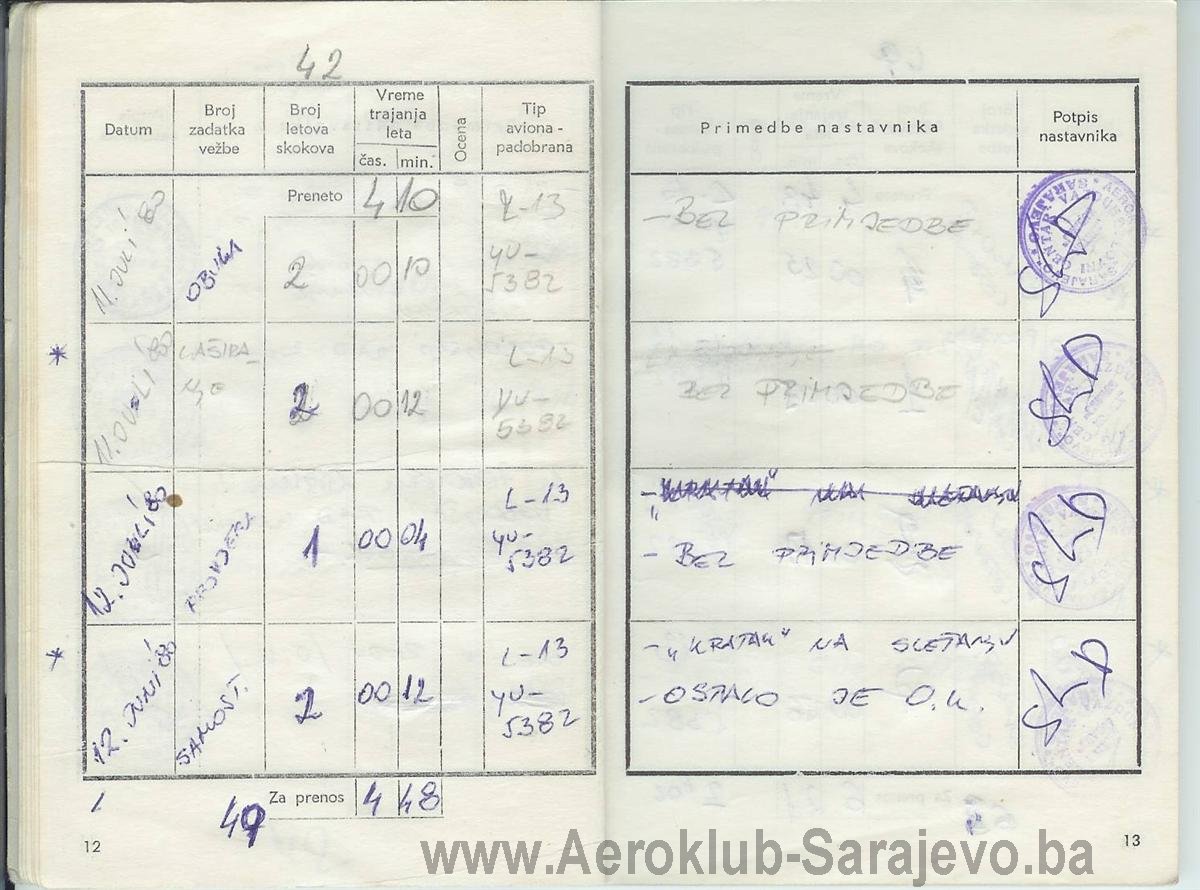 42
Datum
Broj
zadatka
vežbe
Broj
letova
skokova
Vreme
trajanja
leta
čas. min.
Ocena
Tip
aviona -
padobrana
Preneto 4 10
11. JULI 80
OBUKA
2
00 10
L-13
YU-
5382
*
11. JULI 80
LAŠIRA-
NJE
2
00 12
L-13
YU-
5382
12. JULI 80
PROVJERA
1
00 04
L-13
YU-
5382
*
12. JULI 80
SAMOST.
2
00 12
L-13
YU-
5382
1.
49
Za prenos 4 48
12
Primedbe nastavnika
Potpis
nastavnika
- BEZ PRIMJEDBE
BEZ PRIMJEDBE
- BEZ PRIMJEDBE
- „KRATAK" NA SLETANJU
- OSTALO JE O.K.
13
www.Aeroklub-Sarajevo.ba